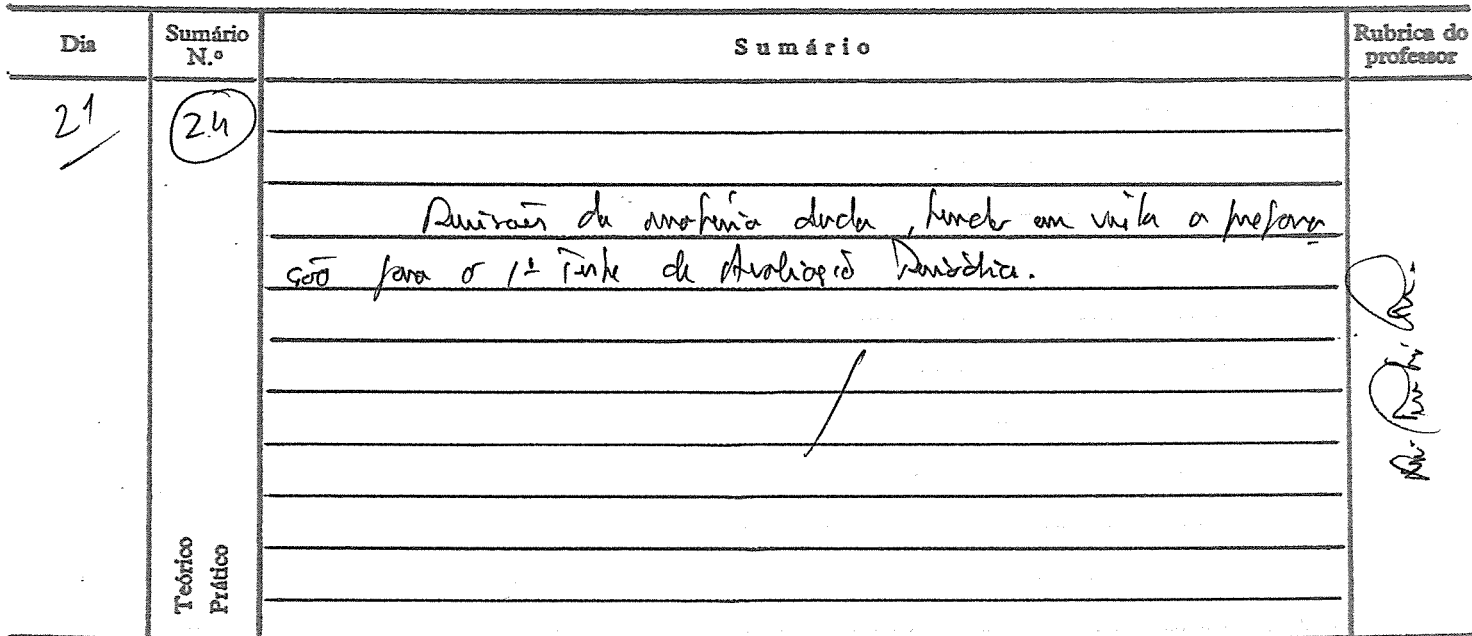 Dia
Sumário N.º
Sumário
Rubrica do professor
21
24
Revisões da matéria dada, tendo em vista a prepara
ção para o 1º Teste de Avaliação Periódica.
Teórico
Prático